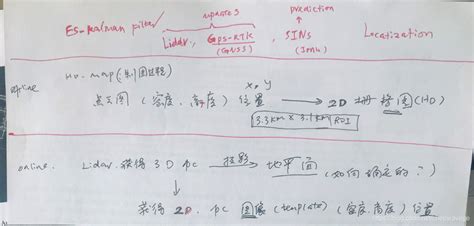 updates prediction
ES-Kalman filter Lidar, GPS-RTK (GNSS), SINS (IMU) Localization
offline HD-map (制图过程)
点云图 (密度、高度) 位置 x, y → 2D 栅格图 (HD)
3.3km × 3.1km ROI
online. Lidar 获得 3D pc 投影→ 地平面 (如何确定的?)
↓
获得 2D pc 图像 (template) (密度、高度) 位置